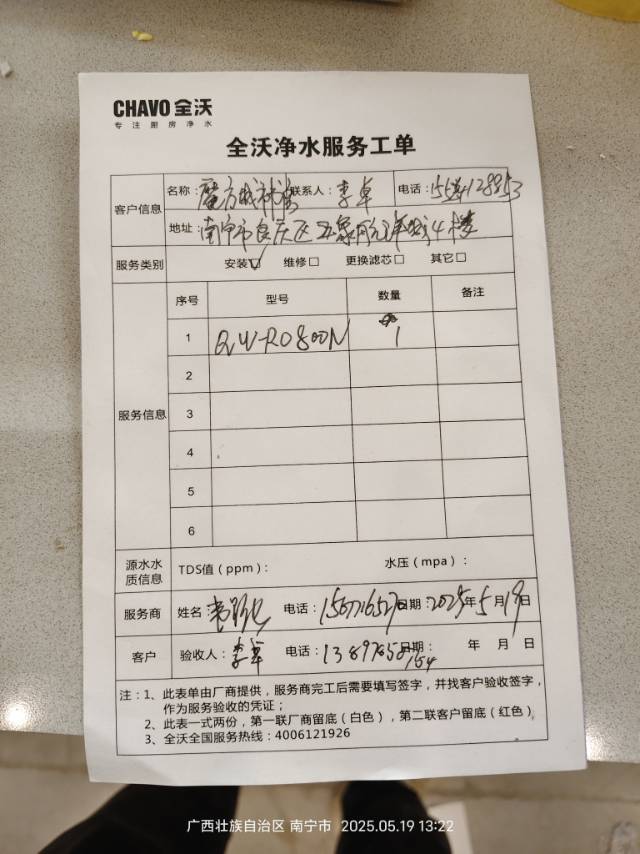 CHAVO 全沃
专注厨房净水
全沃净水服务工单
客户信息
名称： 联系人：李卓 电话：
地址：南宁市良庆区五象 4楼
服务类别 安装☑ 维修□ 更换滤芯□ 其它□
服务信息
序号 型号 数量 备注
1 QW-RO800N 1
2
3
4
5
6
源水水质信息 TDS值（ppm）： 水压（mpa）：
服务商 姓名： 电话： 日期：2025年5月19日
客户 验收人：李卓 电话：13897650154 日期： 年 月 日
注：1、此表单由厂商提供，服务商完工后需要填写签字，并找客户验收签字，
作为服务验收的凭证；
2、此表一式两份，第一联厂商留底（白色），第二联客户留底（红色）
3、全沃全国服务热线：4006121926
广西壮族自治区 南宁市 2025.05.19 13:22